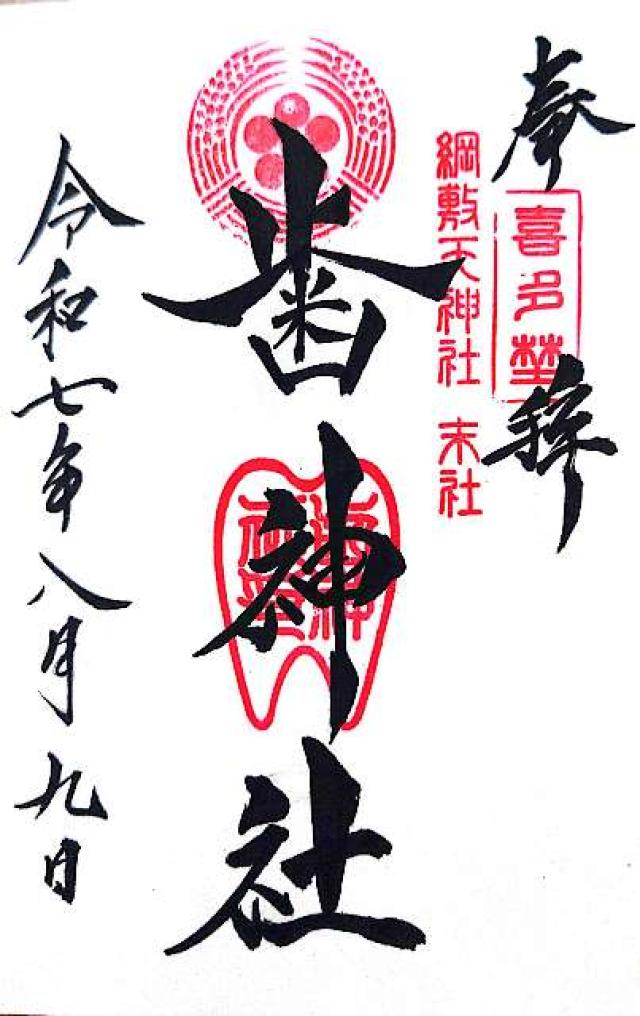 奉拝
喜多埜
綱敷天神社 末社
歯神社
令和七年八月九日